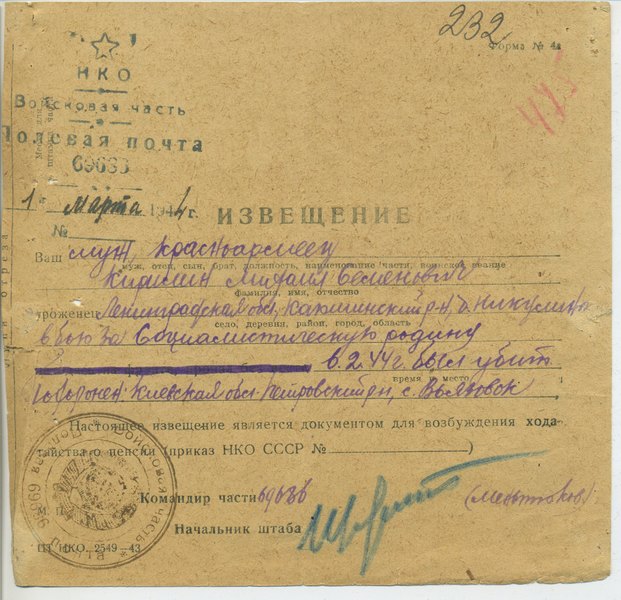 232
Форма № 4а
НКО
Войсковая часть
Полевая почта
69636
1 марта 1944 г.
ИЗВЕЩЕНИЕ
№
Ваш муж, красноармеец
муж, отец, сын, брат, должность, наименование части, воинское звание
Кирилин Михаил Семенович
фамилия, имя, отчество
уроженец Ленинградская обл,
село, деревня, район, город, область
в бою за Социалистическую родину
6.2.44 г. был убит
время и место
Похоронен Киевская обл. Петровский р-н, с.
Настоящее извещение является документом для возбуждения хода-
тайства о пенсии (приказ НКО СССР № )
Командир части 69636
М. П.
Начальник штаба
ПТ НКО. 2549—43